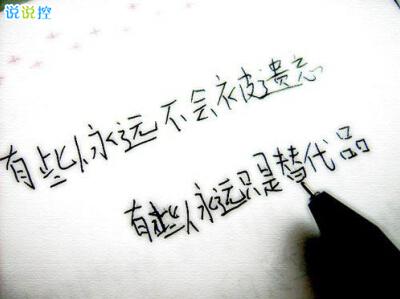 说说控
有些人永远不会被遗忘
有些人永远只是替代品